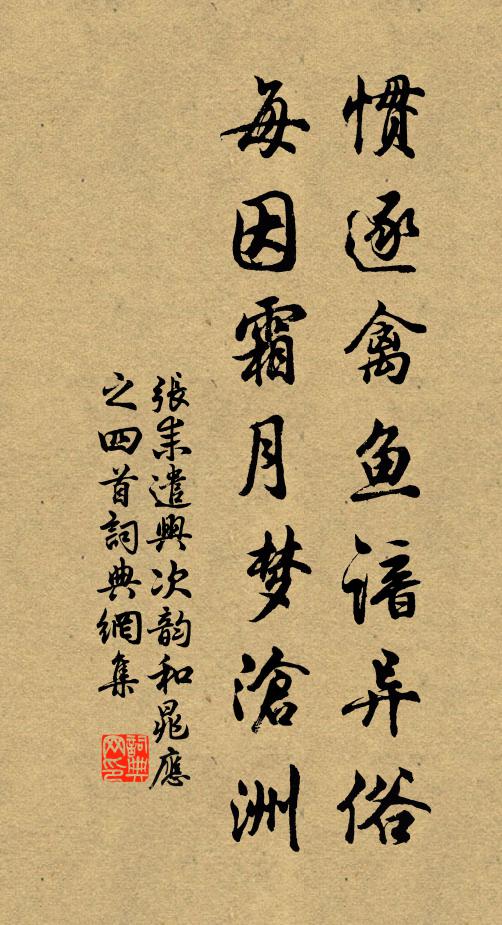 惯逐禽鱼谙异俗
每因霜月梦滄洲
張耒遣興次韵和晁應
之四首詞典網集
詞典
网印